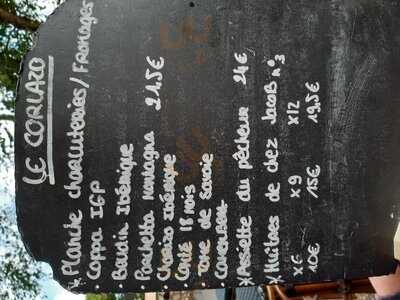 LE CORLAZO
* Planche charcuteries / Fromages
Coppa IGP
• Baudia Ibérique
• Porchetta montagna 21.5€
• Chorizo Ibérique
Comté 18 mois
Tome de Savoie
* Assiette du pêcheur 24€
* Huîtres de chez Jacob n°3
x6 x9 x12
10€ 15€ 19,5€